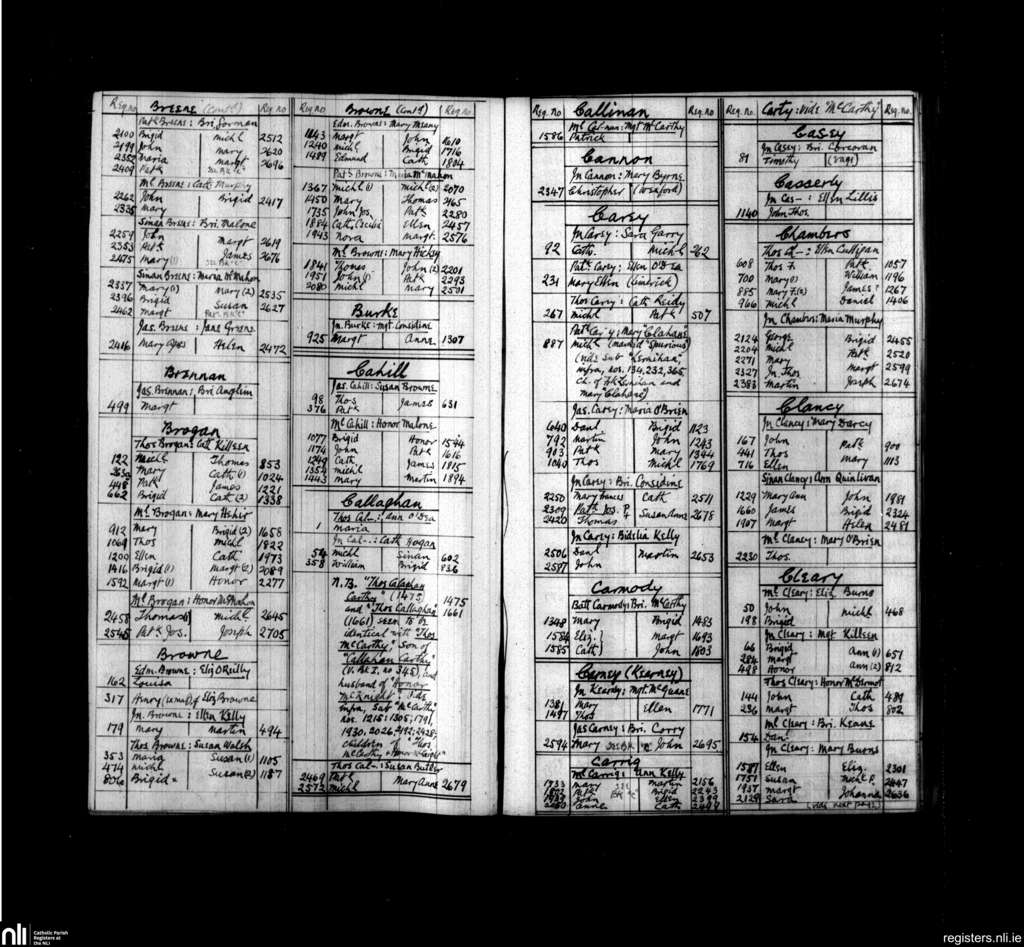 Reg no BREENE (Contd) Reg no
Patk Breene: Bri. Gorman
2100 Brigid Michl 2512
2199 John Mary 2620
2352 Maria Margt 2696
2409 Patk
Ml Breene: Cath Murphy
2262 John Brigid 2417
2335 Mary
Sinan Breene: Bri. Malone
2259 Joh Margt 2619
2353 Patk James 2676
2475 Mary (1)
Sinan Breene: Maria McMahon
2337 Mary (1) Mary (2) 2535
2396 Brigid Susan 2627
2462 Margt
Jas. Breene: Jane Greene
2416 Mary Agnes Helen 2472
Brennan
Jas. Brennan: Bri Anglim
499 Margt
Brogan
Thos Brogan: Cath Killeen
122 Michl Thomas 853
Mary Cath (1) 1024
448 Patk James 1221
662 Brigid Cath (2) 1338
Ml Brogan: Mary Asher
912 Mary Brigid (2) 1658
1064 Thos Michl 1822
1200 Ellen Cath 1973
1416 Brigid (1) Margt (2) 2089
1592 Margt (1) Honor 2277
Ml Brogan: Honor McMahon
2458 Thomas Michl 2645
2545 Patk Jos. Joseph 2705
Browne
Edm. Browne: Eliz O'Reilly
162 Louisa
317 Henry of Eliz Browne
Jn. Browne: Ellen Kelly
179 Mary Martin 494
Thos Browne: Susan Walsh
353 Maria Susan (1) 1105
474 Michl Susan (2) 1187
806 Brigid
Reg no Browne (Contd) Reg no
Edm. Browne: Mary Meany
1143 Margt John 1610
1240 Michl Brigid 1716
1489 Edmund Cath 1804
Patk Browne: Maria McMahon
1367 Michl (1) Michl (2) 2070
1450 Mary Thomas 2165
1735 John Jos. Patk 2280
1884 Cath. Cecilia Ellen 2457
1943 Nora Margt. 2576
Ml Browne: Mary Hickey
1841 Thomas John (2) 2201
1951 John (1) Patk 2293
2080 Michl Mary 2501
Burke
Jn. Burke: Mgt. Considine
925 Margt Anne 1307
Cahill
Jas. Cahill: Susan Browne
98 Thos James 631
376 Patk
Ml Cahill: Honor Malone
1077 Brigid Honor 1544
1174 John Patk 1616
1249 Cath James 1815
1354 Michl Martin 1894
1443 Mary
Callaghan
Thos Cal-: Ann O'Dea
1 Maria
Jn Cal-: Cath Hogan
54 Michl Sinan 602
358 William Brigid 836
N.B. "Thos Callaghan
Carthy" (1475) 1475
and "Thos Callaghan" 1661
(1661) seem to be
identical with "Thos
McCarthy," son of
"Callaghan Carthy"
(V. Bk I, no 345), and
husband of "Honor
McKnight". Vide
infra, sub "McCarthy"
nos. 1215; 1305; 1791,
1930, 2026, 2192; 2428;
children of "Thos
McCarthy & Honor McKnight"
Thos Cal-: Susan Butler
2469 Patk Mary Anne 2679
2572 Michl
Reg. No Callinan Reg. no
Ml Cal-nan: Mgt McCarthy
1586 Patrick
Cannon
Jn Cannon: Mary Byrne
2347 Christopher (Wexford)
Carey
Jn Carey: Sara Garry
92 Cath. Michl 262
Patk Carey: Ellen O'Dea
231 Mary Ellen (Limerick)
Thos Carey: Cath Reidy
267 Michl Patk 507
Patk Carey: Mary Clahane
887 Michl (marked "Spurious")
(vide sub "Lernihan,"
infra, nos. 134, 232, 365
Ch. of Lernihan and
Mary Clahane)
Jas. Carey: Maria O'Brien
640 Danl Brigid 1123
792 Martin John 1243
903 Patk Mary 1344
1040 Thos Michl 1769
Jn Carey: Bri. Considine
2250 Mary Frances Cath 2511
2309 Patk Jos. P. Susan Anne 2678
2420 Thomas
Jn Carey: Bidelia Kelly
2506 Danl Martin 2653
2587 John
Carmody
Batt Carmody: Bri. McCarthy
1348 Mary Brigid 1483
1584 Eliz. } Margt 1693
1585 Cath } John 1803
Carney (Kearney)
Jn Kearney: Mgt. McGuane
1381 Mary Ellen 1771
1497 Thos
Jas Carney: Bri. Corry
2594 Mary John 2695
Carrig
Ml Carrig: Ann Kelly
1733 Mary Martin 2156
Patk Brigid 2243
John Ellen
Anne Cath
Reg. no Carty: vide "McCarthy" Reg. no.
Casey
Jn Casey: Bri. Corcoran
81 Timothy (vage)
Casserly
Jn Cas-: Ellen Lillis
1140 John Thos.
Chambers
Thos Ch-: Ellen Culligan
608 Thos F. Patk 1057
700 Mary (1) William 1196
885 Mary F. (2) James 1267
966 Michl Daniel 1406
Jn Chambers: Maria Murphy
2124 George Brigid 2455
2204 Michl Patk 2520
2271 Mary Margt 2599
2327 Jn. Thos Joseph 2674
2383 Martin
Clancy
Jn Clancy: Mary Darcy
167 John Patk 900
441 Thos Mary 1113
716 Ellen
Sinan Clancy: Ann Quinlivan
1229 Mary Ann John 1981
1660 James Brigid 2324
1907 Margt Helen 2481
Ml Clancy: Mary O'Brien
2230 Thos.
Cleary
Ml Cleary: Eliz Burns
50 John Michl 468
198 Brigid
Jn Cleary: Mgt Killeen
66 Brigid Ann (1) 651
284 Margt Ann (2) 812
498 Honor
Thos Cleary: Honor McDermot
144 John Cath 481
236 Margt Thos 802
Ml Cleary: Bri. Keane
154 Danl
Jn Cleary: Mary Burns
1587 Ellen Eliz. 2301
1751 Susan Michl P. 2447
1937 Margt Johanna 2636
2129 Sara (vide next page)
nli
Catholic Parish
Registers at
the NLI
registers.nli.ie